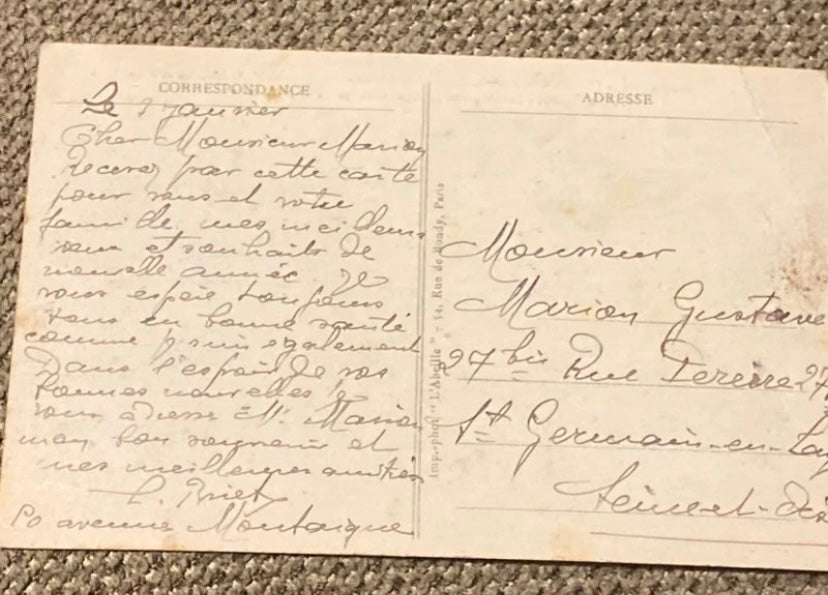 CORRESPONDANCE
Le 2 Janvier
Cher Monsieur Marion
Recevez par cette carte
pour vous et votre
famille, mes meilleurs
vœux et souhaits de
nouvelle année. Je
vous espère toujours
tous en bonne santé
comme j suis egalement
Dans l'espoir de vos
bonnes nouvelles je
vous adresse Mr Marion
mon bon souvenir et
mes meilleures amitiés
Briet
avenue Montaigne
Imp.-phot. "L'Abeille" - 14, Rue de Bondy, Paris
ADRESSE
Monsieur
Marion Gustave
27 bis Rue Pereire 27
St Germain-en-Lay
Seine-et-Ois